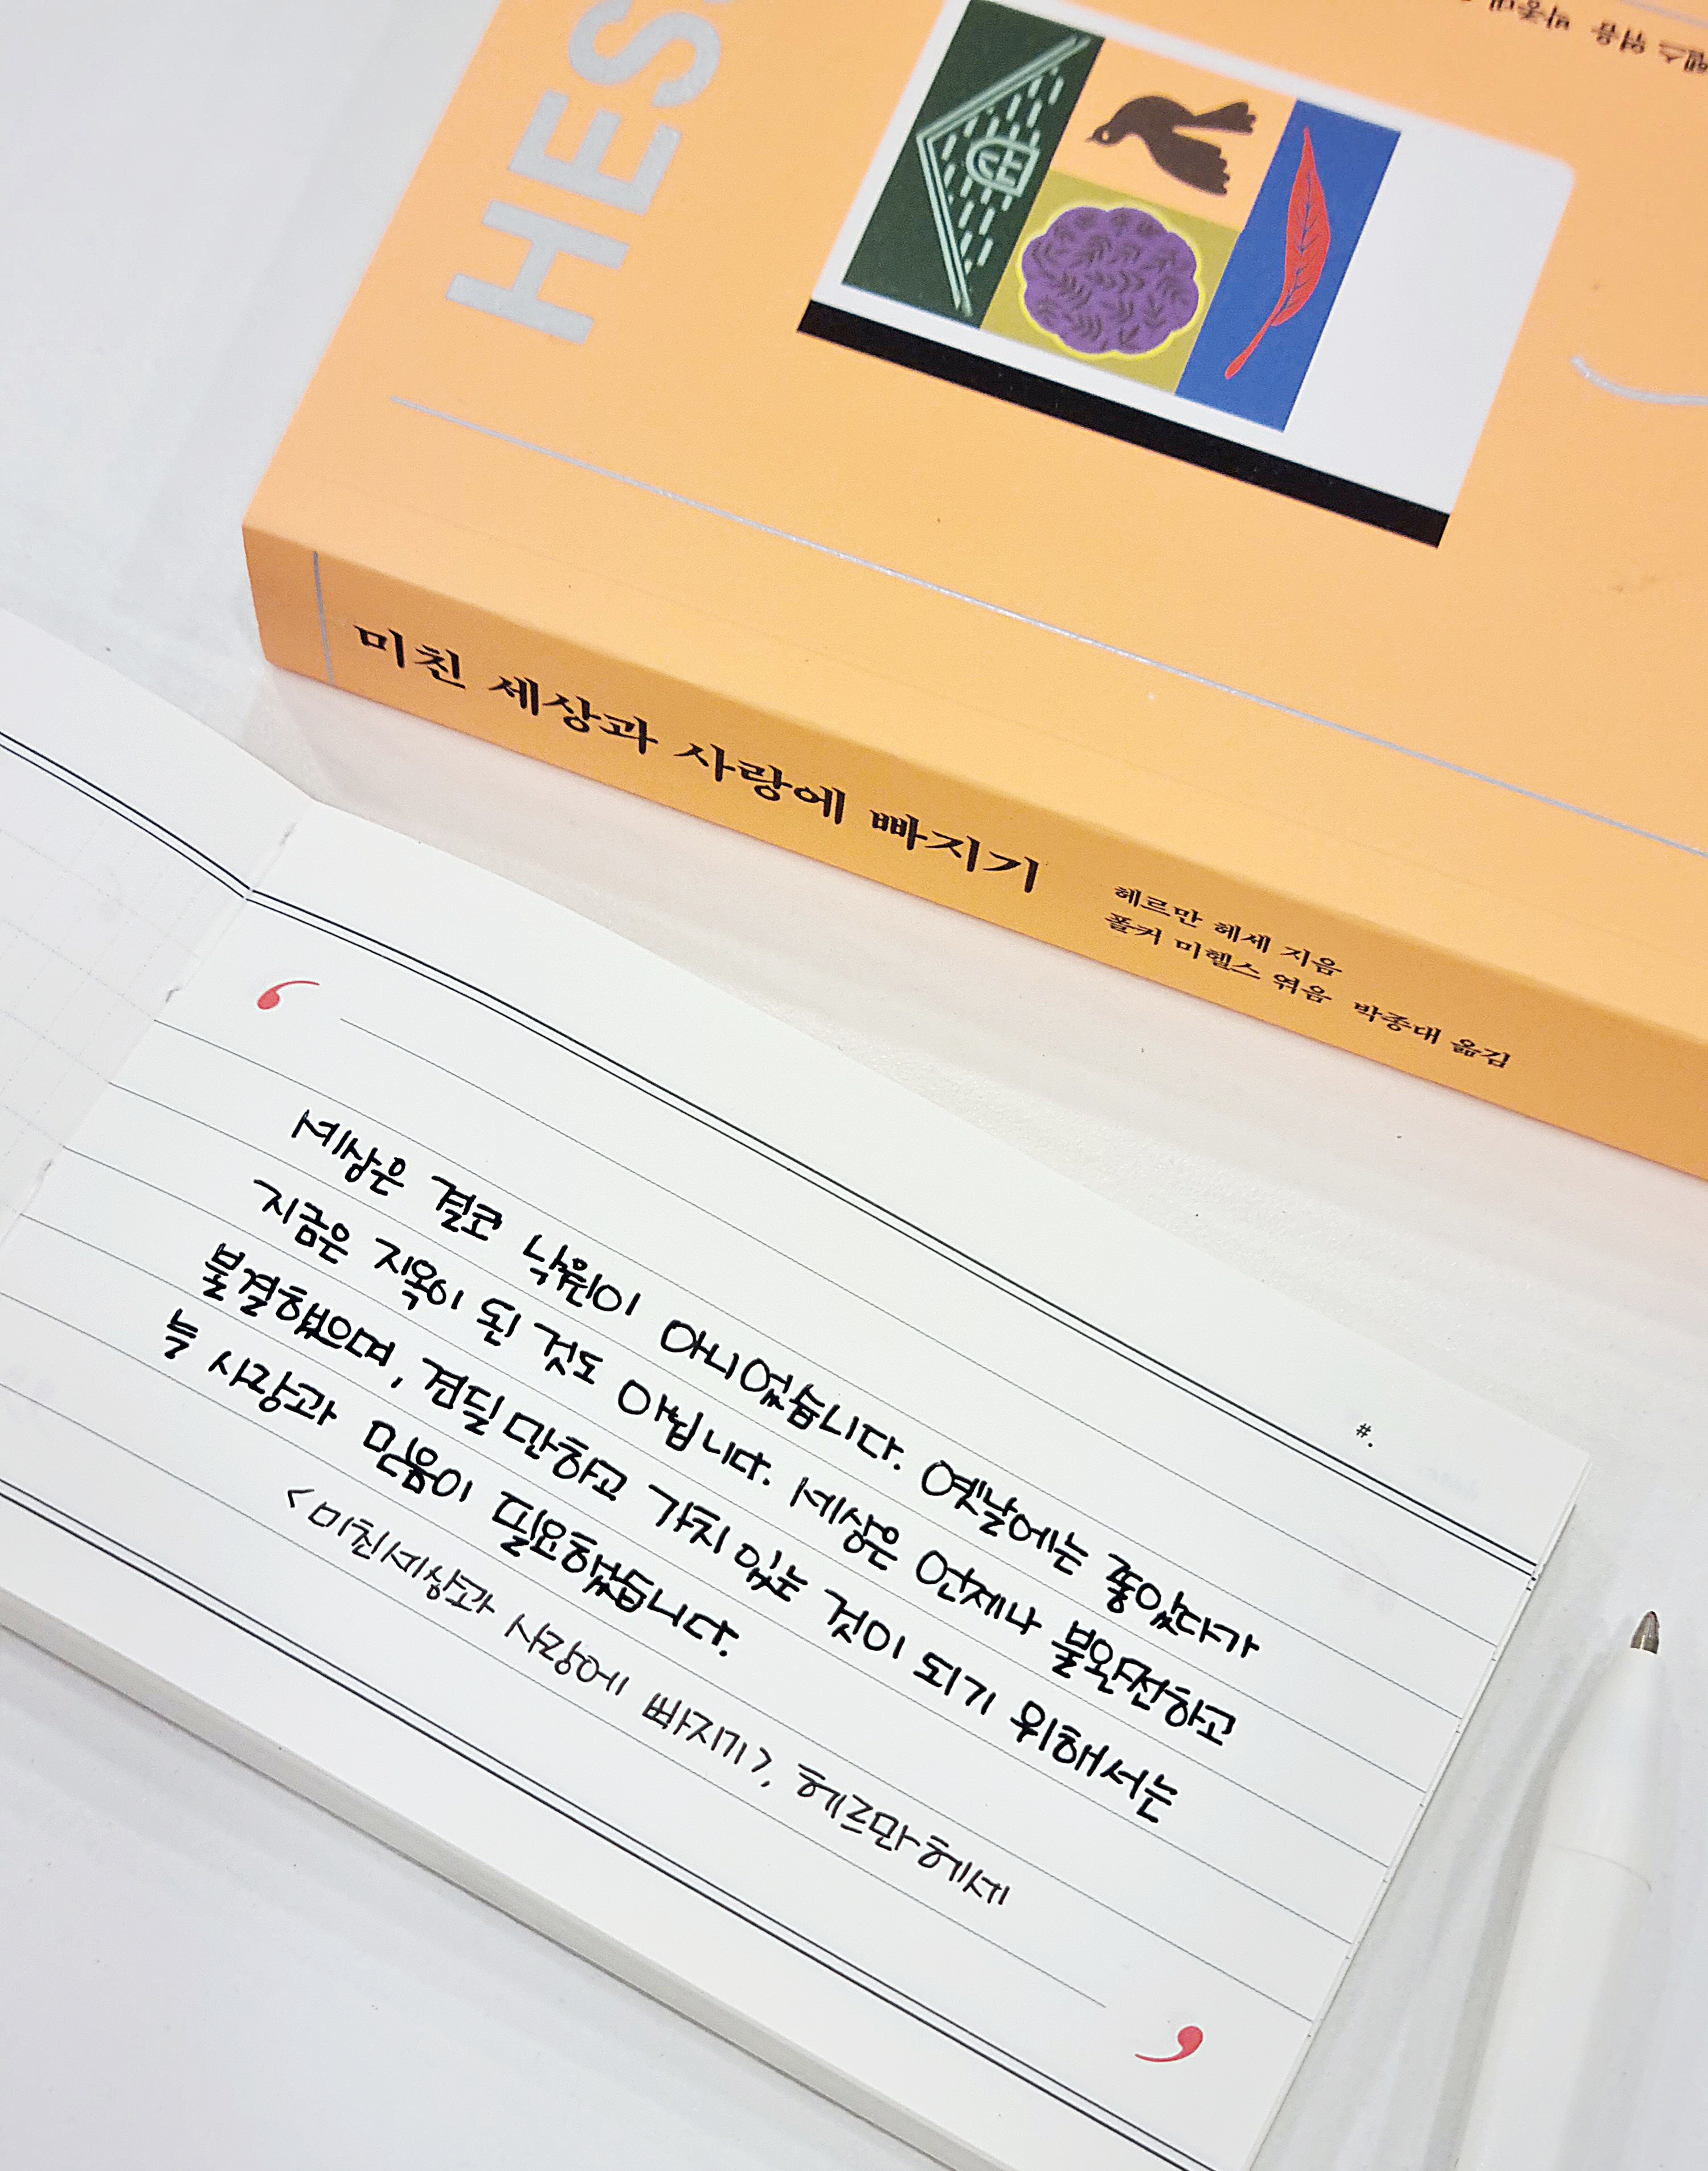 HES
미친 세상과 사랑에 빠지기
헤르만 헤세 지음
폴커 미헬스 엮음 박종대 옮김
#.
세상은 결코 낙원이 아니었습니다. 옛날에는 좋았다가
지금은 지옥이 된 것도 아닙니다. 세상은 언제나 불완전하고
불결했으며, 견딜 만하고 가치 있는 것이 되기 위해서는
늘 사랑과 믿음이 필요했습니다.
<미친 세상과 사랑에 빠지기>, 헤르만 헤세